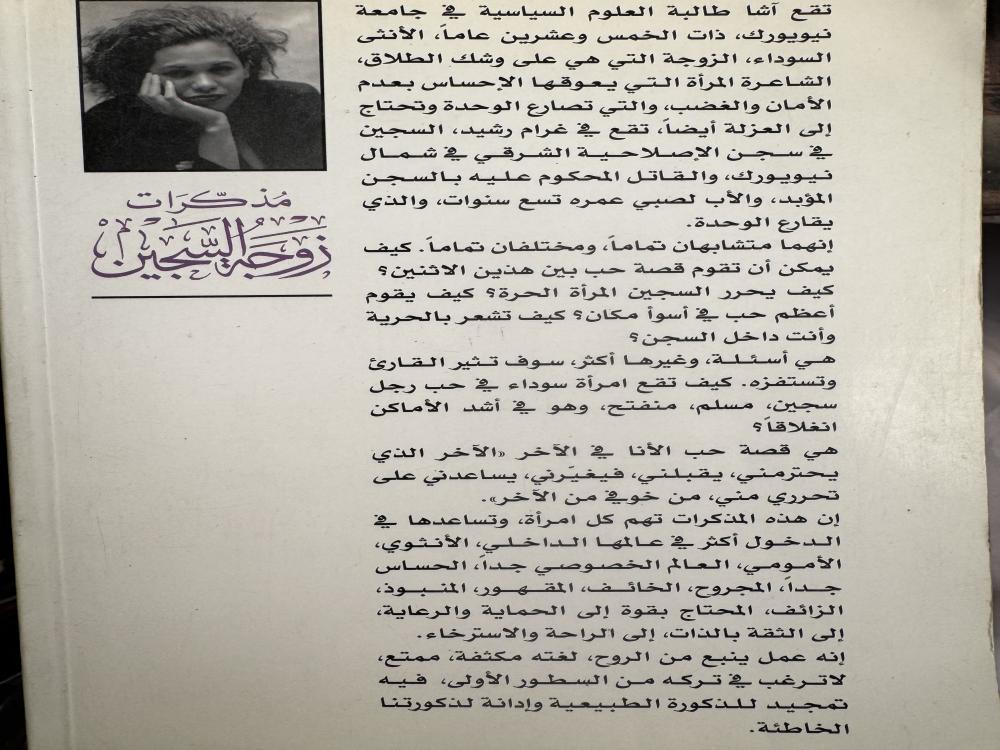 تقع آشا طالبة العلوم السياسية في جامعة
نيويورك، ذات الخمس وعشرين عاماً، الأنثى
السوداء، الزوجة التي هي على وشك الطلاق،
الشاعرة المرأة التي يعوقها الإحساس بعدم
الأمان والغضب، والتي تصارع الوحدة وتحتاج
إلى العزلة أيضاً، تقع في غرام رشيد، السجين
في سجن الإصلاحية الشرقي في شمال
نيويورك، والقاتل المحكوم عليه بالسجن
المؤبد، والأب لصبي عمره تسع سنوات، والذي
يقارع الوحدة.
إنهما متشابهان تماماً، ومختلفان تماماً. كيف
يمكن أن تقوم قصة حب بين هذين الاثنين؟
كيف يحرر السجين المرأة الحرة؟ كيف يقوم
أعظم حب في أسوأ مكان؟ كيف تشعر بالحرية
وأنت داخل السجن؟
هي أسئلة، وغيرها أكثر، سوف تثير القارئ
وتستفزه. كيف تقع امرأة سوداء في حب رجل
سجين، مسلم، منفتح، وهو في أشد الأماكن
انغلاقاً؟
هي قصة حب الأنا في الآخر «الآخر الذي
يحترمني، يقبلني، فيغيّرني، يساعدني على
تحرري مني، من خوفي من الآخر».
إن هذه المذكرات تهم كل امرأة، وتساعدها في
الدخول أكثر في عالمها الداخلي، الأنثوي،
الأمومي، العالم الخصوصي جداً، الحساس
جداً، المجروح، الخائف، المقهور، المنبوذ،
الزائف، المحتاج بقوة إلى الحماية والرعاية،
إلى الثقة بالذات، إلى الراحة والاسترخاء.
إنه عمل ينبع من الروح، لغته مكثفة، ممتع،
لاترغب في تركه من السطور الأولى، فيه
تمجيد للذكورة الطبيعية وإدانة لذكورتنا
الخاطئة.
مُذكّرَات
زوجَة السَّجين